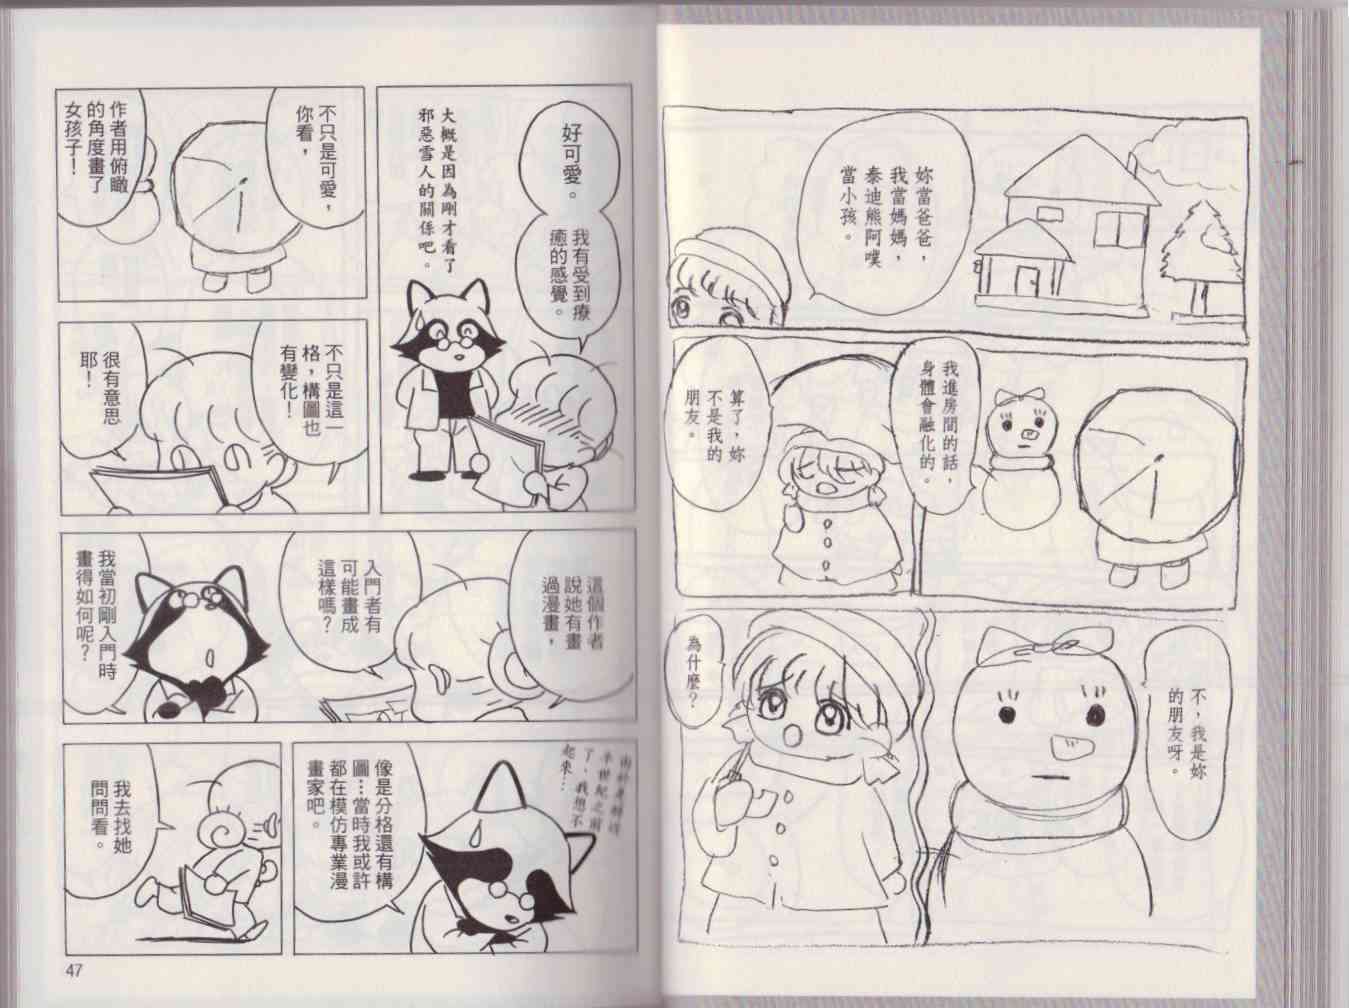 妳當爸爸，
我當媽媽，
泰迪熊阿噗
當小孩。
我進房間的話，
身體會融化的。
算了，妳
不是我的
朋友。
不，我是妳
的朋友呀。
為什麼？
好可愛。
我有受到療
癒的感覺。
大概是因為剛才看了
邪惡雪人的關係吧。
不只是可愛，
你看，
作者用俯瞰
的角度畫了
女孩子！
不只是這一
格，構圖也
有變化！
很有意思
耶！
這個作者
說她有畫
過漫畫，
入門者有
可能畫成
這樣嗎？
我當初剛入門時
畫得如何呢？
半世紀之前
了，我想不
起來…
像是分格還有構
圖…當時我或許
都在模仿專業漫
畫家吧。
我去找她
問問看。
47